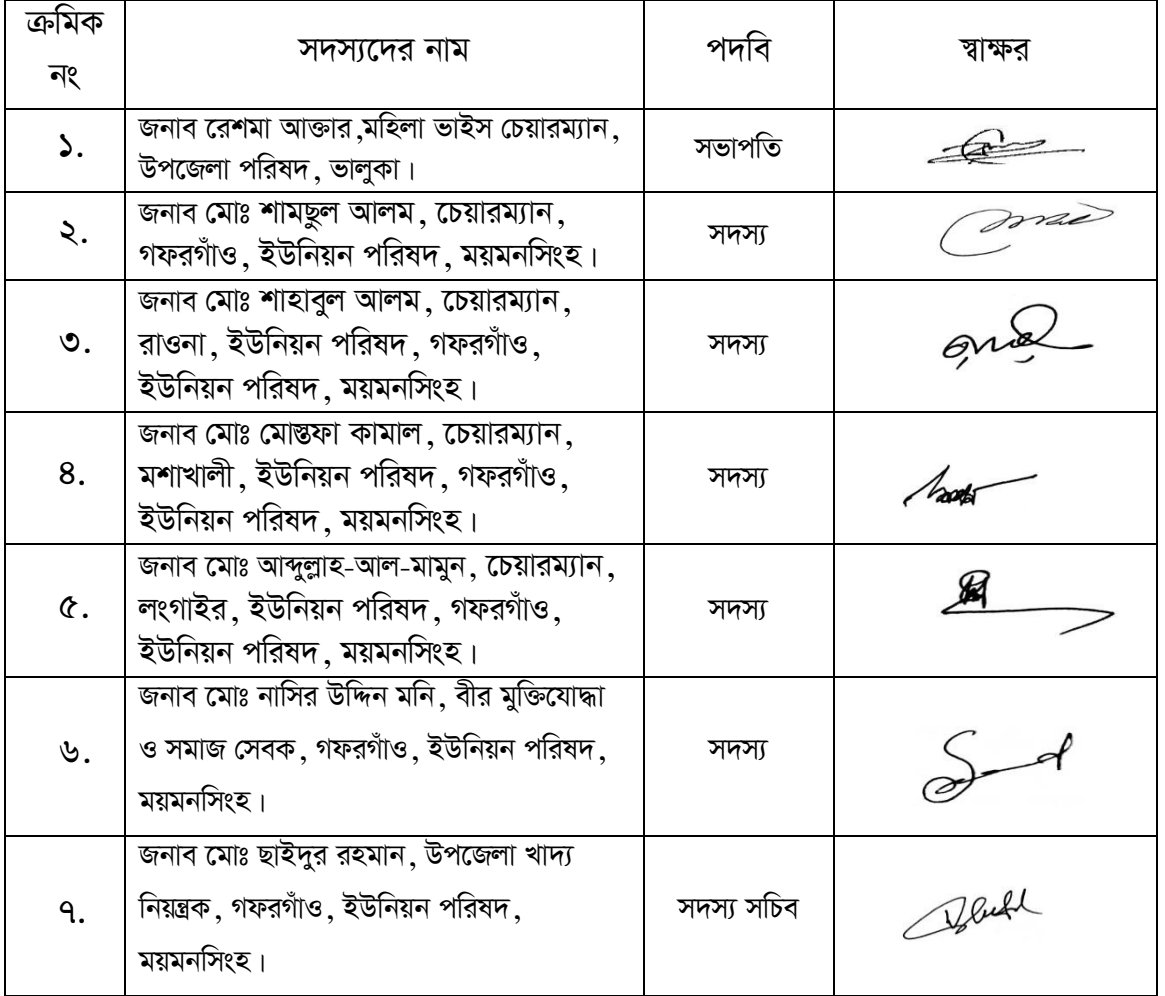 ক্রমিক
নং
সদস্যদের নাম
পদবি
স্বাক্ষর
১.
জনাব রেশমা আক্তার ,মহিলা ভাইস চেয়ারম্যান,
উপজেলা পরিষদ, ভালুকা।
সভাপতি
২.
জনাব মোঃ শামছুল আলম, চেয়ারম্যান,
গফরগাঁও, ইউনিয়ন পরিষদ, ময়মনসিংহ।
সদস্য
৩.
জনাব মোঃ শাহাবুল আলম, চেয়ারম্যান,
রাওনা, ইউনিয়ন পরিষদ, গফরগাঁও,
ইউনিয়ন পরিষদ, ময়মনসিংহ।
সদস্য
৪.
জনাব মোঃ মোস্তফা কামাল, চেয়ারম্যান,
মশাখালী, ইউনিয়ন পরিষদ, গফরগাঁও,
ইউনিয়ন পরিষদ, ময়মনসিংহ।
সদস্য
৫.
জনাব মোঃ আব্দুল্লাহ-আল-মামুন, চেয়ারম্যান,
লংগাইর, ইউনিয়ন পরিষদ, গফরগাঁও,
ইউনিয়ন পরিষদ, ময়মনসিংহ।
সদস্য
৬.
জনাব মোঃ নাসির উদ্দিন মনি, বীর মুক্তিযোদ্ধা
ও সমাজ সেবক, গফরগাঁও, ইউনিয়ন পরিষদ,
ময়মনসিংহ।
সদস্য
৭.
জনাব মোঃ ছাইদুর রহমান, উপজেলা খাদ্য
নিয়ন্ত্রক, গফরগাঁও, ইউনিয়ন পরিষদ,
ময়মনসিংহ।
সদস্য সচিব